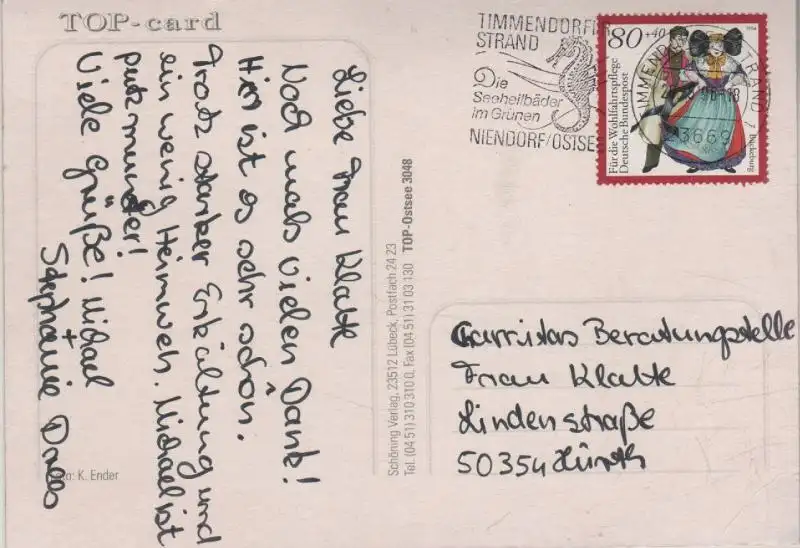 TOP-card
Liebe Frau Klatte
Noch mals vielen Dank!
Hier ist es sehr schön.
Trotz starker Erkältung und
ein wenig Heimweh. Michael ist
putzmunter!
Viele Grüße! Michael
+
Stephanie
Foto: K. Ender
Schöning Verlag, 23512 Lübeck, Postfach 24 23
Tel. (04 51) 310 310 0, Fax (04 51) 31 03 130 TOP-Ostsee 3048
TIMMENDORFER
STRAND
Die
Seeheilbäder
im Grünen
NIENDORF/OSTSEE
80+40
1994
Für die Wohlfahrtspflege
Deutsche Bundespost
Bückeburg
TIMMENDORFER STRAND 1
23669
Carritas Beratungstelle
Frau Klatte
Lindenstraße
50354 Hürth